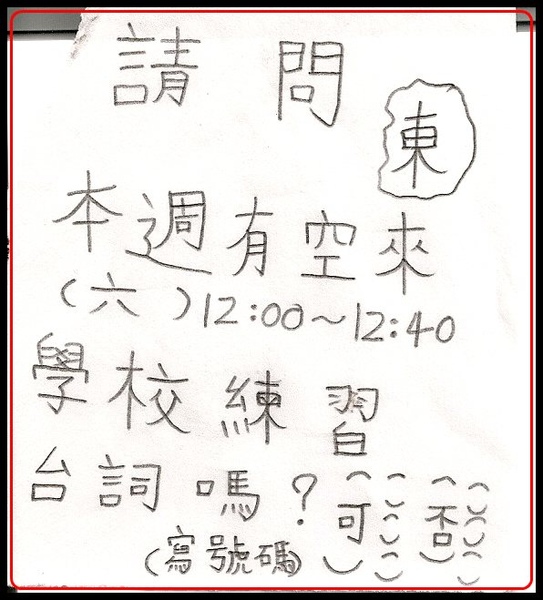 請問
東
本週有空來
(六)12:00~12:40
學校練習
台詞嗎?(可)()()()(否)()()()
(寫號碼)